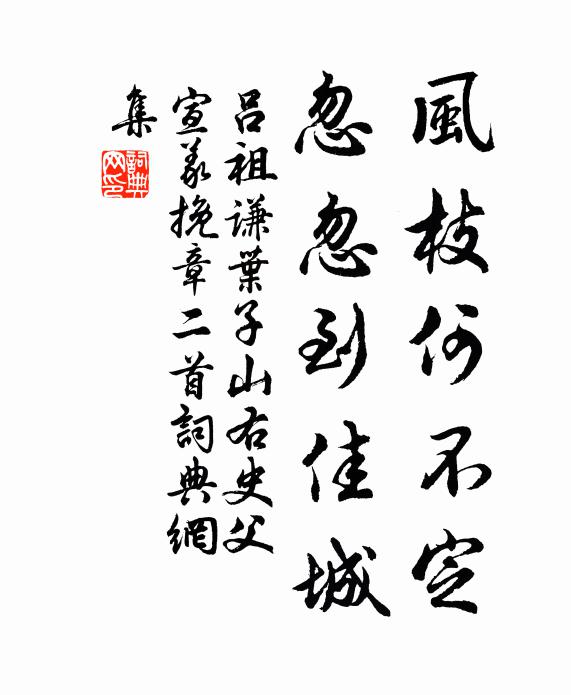 風枝何不定
忽忽到佳城
呂祖謙葉子山右史父
宣義挽章二首詞典網
集
詞典
网印